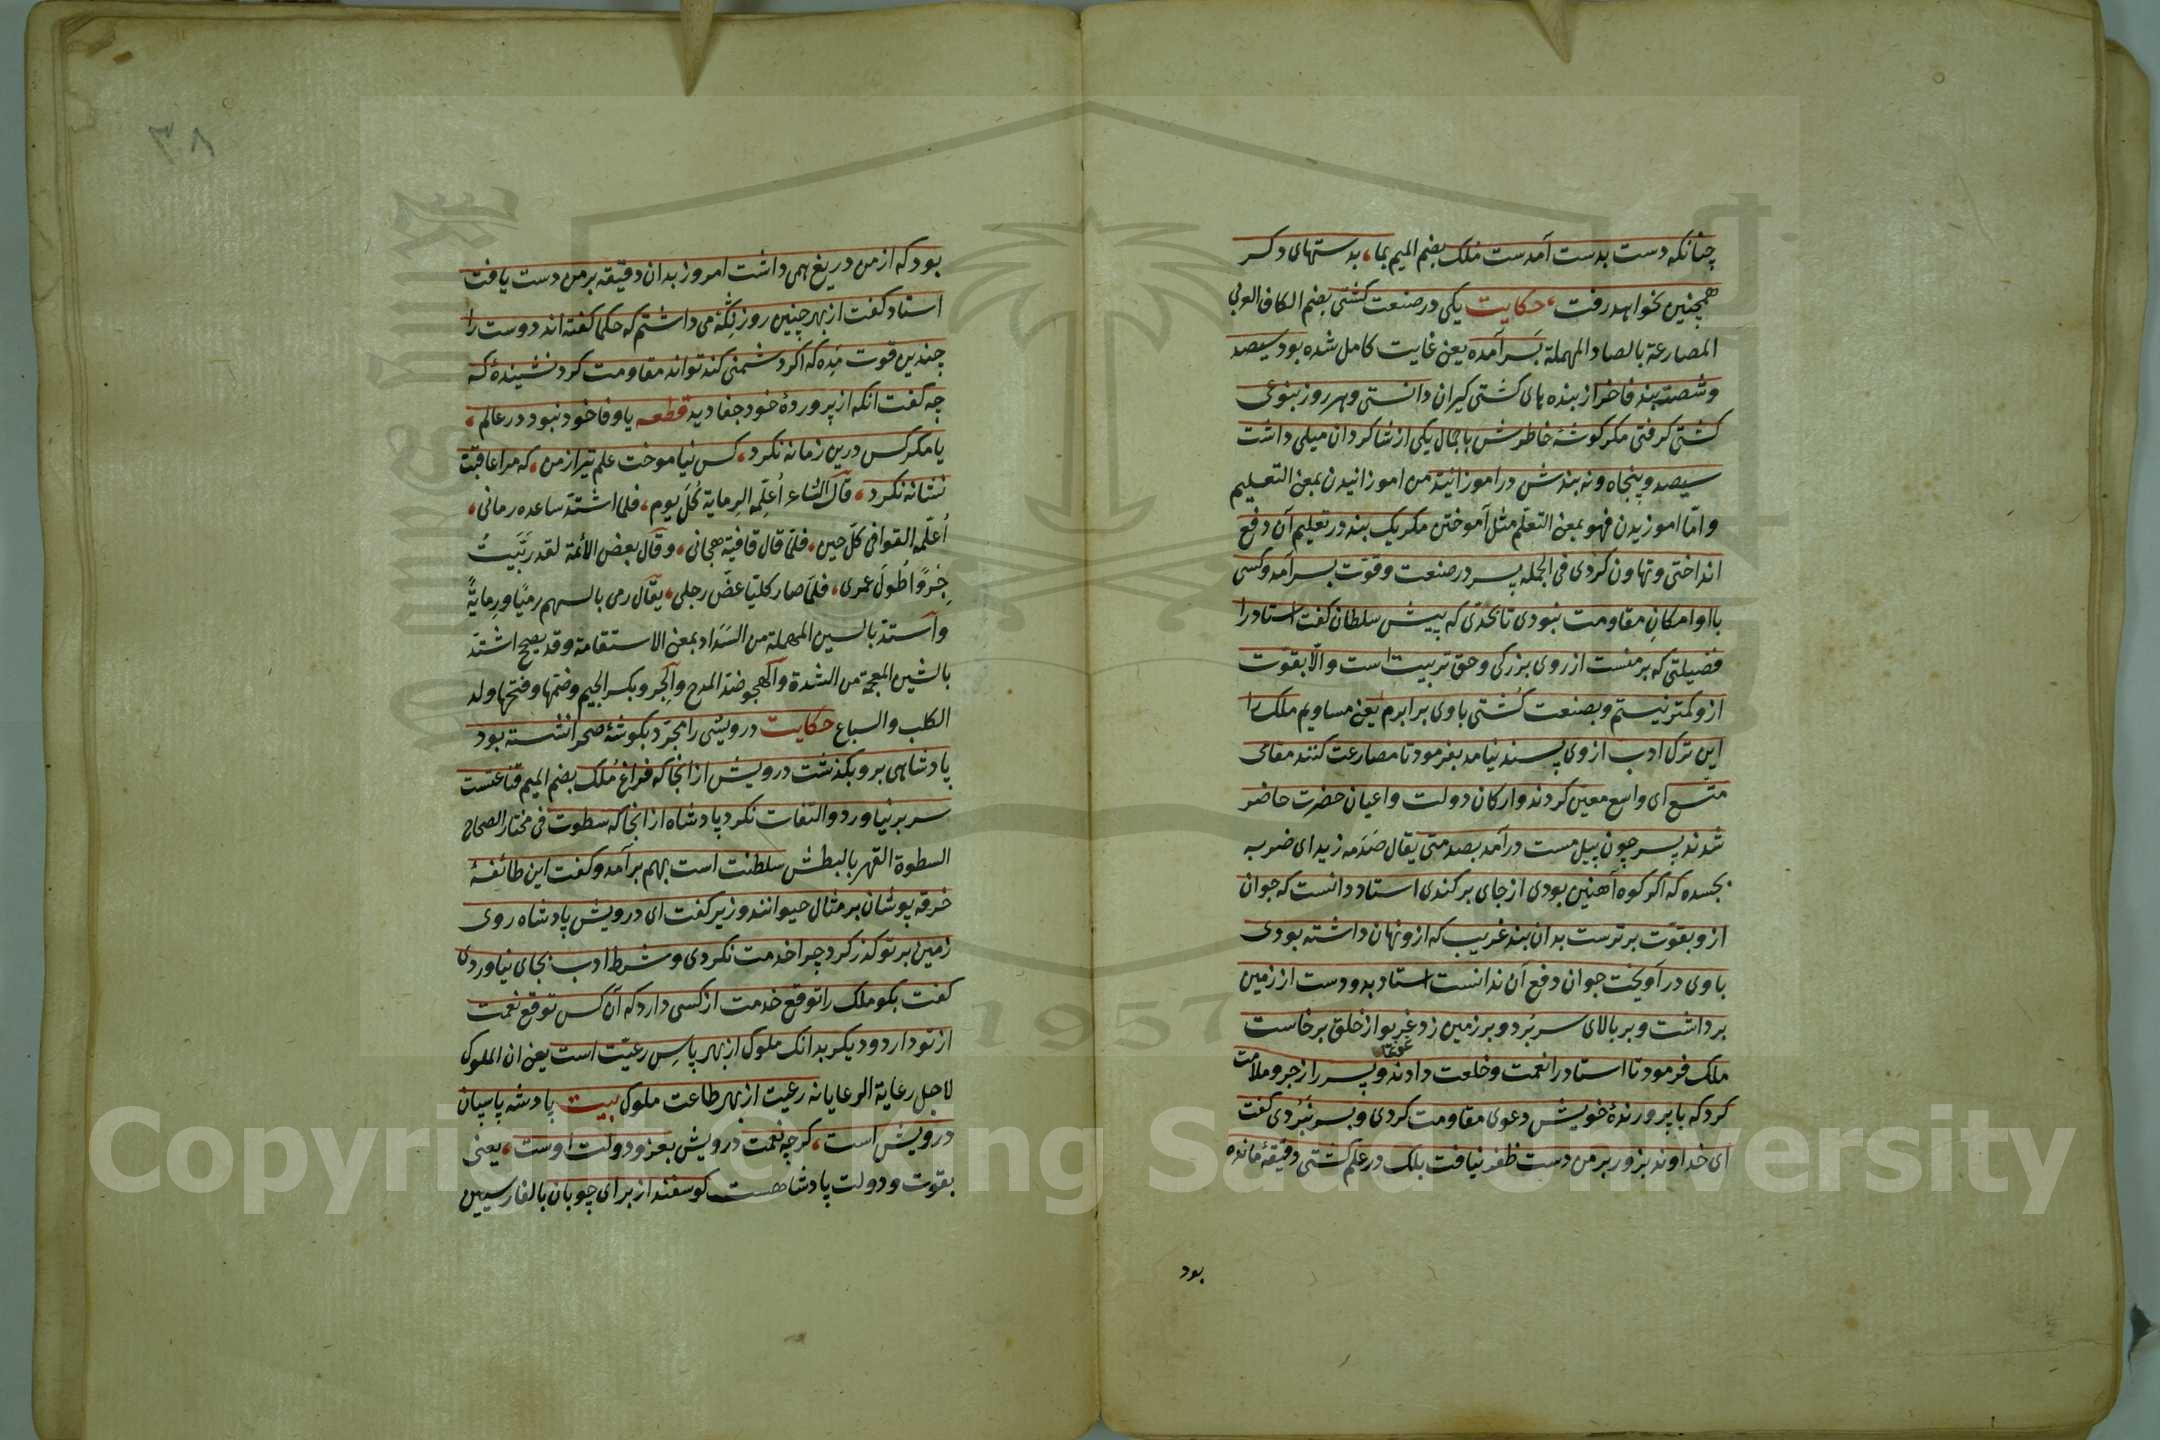 چنانکه دست بدست آمدست ملک بضم المیم بما، بدستهای دکر
همچنین نخواهد رفت، حکایت یکی در صنعت کشتی بضم الکاف العربی
المصارعة بالصاد المهملة بسر آمده یعنی غایت کامل شده بود سیصد
وشصت بند فاخر از بنده های کشتی کیران دانستی وهر روز بنوعی
کشتی کرفتی مکر کوشۀ خاطرش با جمال یکی از شاکردان میلی داشت
سیصد وپنجاه ونه بندش در اموزانید من اموزانیدن بمعنی التعلیم
وامّا اموزیدن فهو بمعنی التعلّم مثل آموختن مکر یک بند در تعلیم آن دفع
انداختی وتهاون کردی فی الجمله پسر در صنعت وقوّت بسر آمد وکسی
با او امکان مقاومت نبودی تا بحدّی که پیش سلطان کفت استاد را
فضیلتی که بر منست از روی بزرکی وحق تربیت است والّا بقوّت
ازو کمتر نیستم وبصنعت کشتی با وی برابرم یعنی مساویم ملک را
این ترک ادب از وی پسند نیامد بفرمود تا مصارعت کنند مقامی
متّسع ای واسع معیّن کردند وارکان دولت واعیان حضرت حاضر
شدند پسر چون پیل مست درآمد بصدمتی یقال صَدَمه زید ای ضربه
بجسده که اکر کوه آهنین بودی از جای برکندی استاد دانست که جوان
ازو بقوّت برترست بدان بند غریب که ازو نهان داشته بودی
با وی درآویخت جوان دفع آن ندانست استاد بدو دست از زمین
برداشت وبر بالای سر بُرد وبر زمین زد غریو از خلق برخاست
غوغا
ملک فرمود تا استاد را نعمت وخلعت دادند وپسر را زجر وملامت
کرد که با پرورندۀ خویش دعوی مقاومت کردی وبسر نبُردی کفت
ای خداوند بزور بر من دست ظفر نیافت بلک در علم کشتی دقیقۀ مانده
بود
٣٨
بود که از من دریغ همی داشت امروز بدان دقیقه بر من دست یافت
استاد کفت از بهر چنین روز نکه می داشتم که حکما کفته اند دوست را
چندین قوت مده که اکر دشمنی کند تواند مقاومت کرد نشیندۀ که
چه کفت انکه از پروردۀ خود جفا دید قطعه یا وفا خود نبود در عالم،
یا مکر کس درین زمانه نکرد، کس نیاموخت علم تیر از من، که مرا عاقبت
نشانه نکرد، قال الشاعر أُعلّمه الرمایة کُلَّ یوم، فلما اشتدّ ساعده رمانی،
أُعلّمه القوافی کلّ حین، فلمّا قال قافیة هجانی، وقال بعض الأئمة لقد ربّیتُ
جِرْوًا طُولَ عمری، فلمّا صار کلبا عضّ رجلی، یقال رمی بالسهم رمیًا ورِمایةً
واستدّ بالسین المهملة من السَدَاد بمعنی الاستقامة وقد یصحح اشتدّ
بالشین المعجمة من الشدة والهجو ضد المدح والجرو بکسر الجیم وضمها وفتحها ولد
الکلب والسباع حکایت درویشی را مجرّد بکوشۀ صحرا نشسته بود
پادشاهی برو بکذشت درویش از انجا که فراغ مُلک بضم المیم قناعتست
سر برنیاورد والتفات نکرد پادشاه از انجا که سطوت فی مختار الصحاح
السطوة القهر بالبطش سلطنت است بهم برآمد وکفت این طائفۀ
خرقه پوشان بر مثال حیوانند وزیر کفت ای درویش پادشاه روی
زمین بر تو کذر کرد چرا خدمت نکردی وشرط ادب بجای نیاوردی
کفت بکو ملک را توقع خدمت از کسی دارد که آن کس توقع نعمت
از تو دارد ودیکر بدانک ملوک از بهر پاس رعیّت است یعنی ان الملوک
لاجل رعایة الرعایا نه رعیت از بهر طاعت ملوک بیت پادشه پاسبان
درویش است، کرچه نعمت درویش بعز ودولت اوست، یعنی
بقوت ودولت پادشاهست کوسفند از برای چوبان بالفارسیین